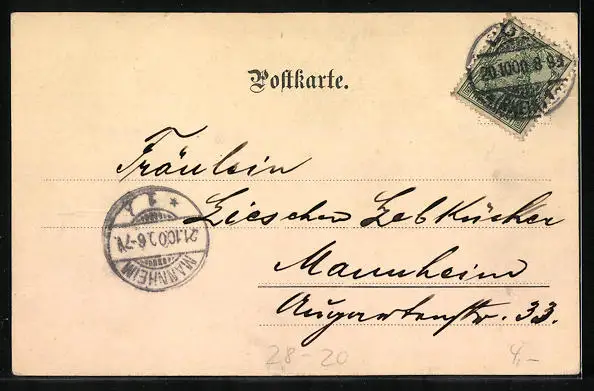 Postkarte.
20.10.00. 8-9
Fräulein
Lieschen Lebkücher
Mannheim
Augartenstr. 33.
MANNHEIM
21.10.00. 6-7V.
28-20
4,-